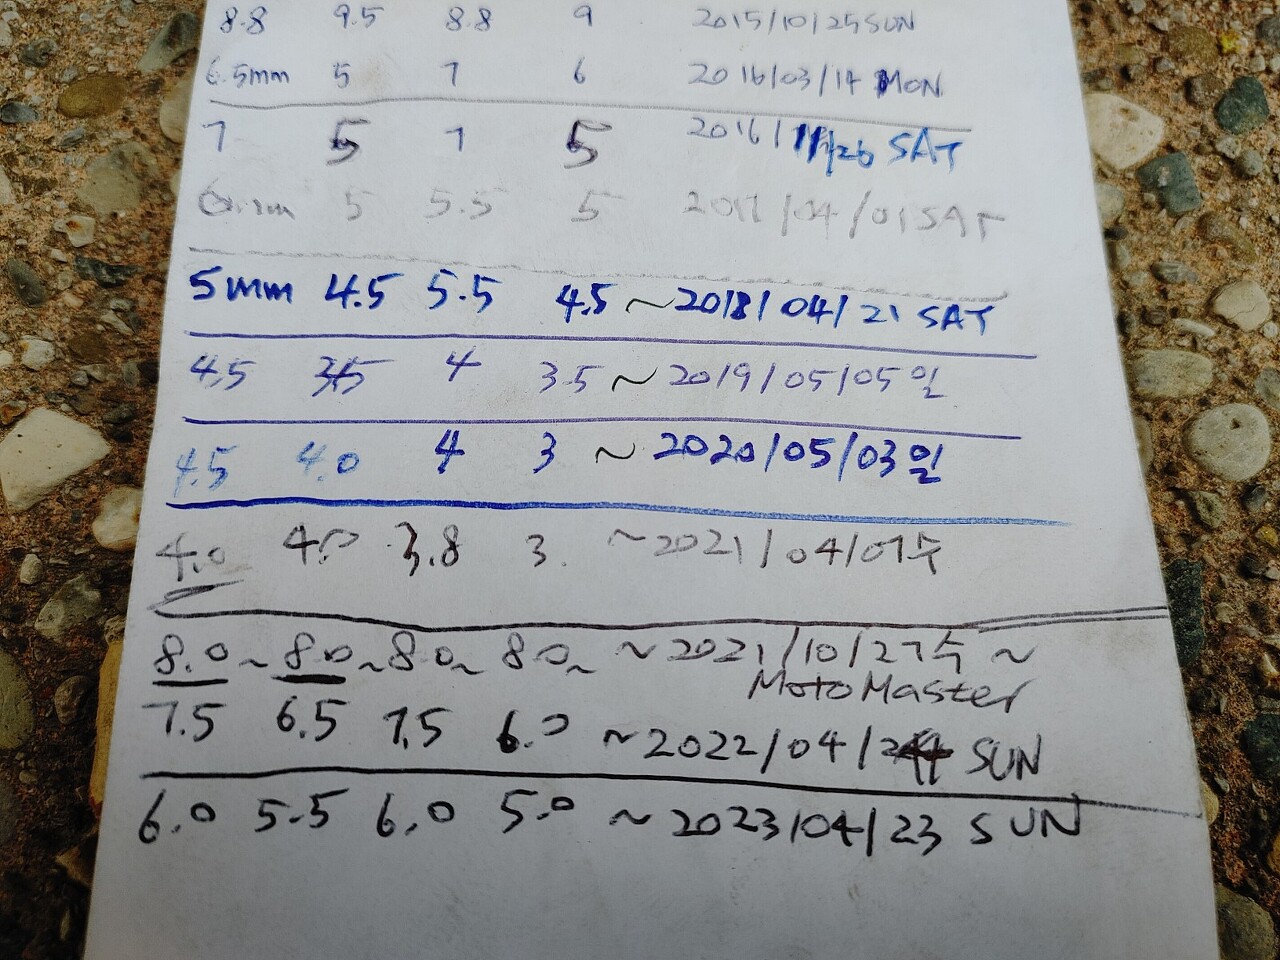 8.8 9.5 8.8 9 2015/10/25 SUN
6.5mm 5 7 6 2016/03/14 MON
7 5 7 5 2016/11/26 SAT
5 5.5 5 2017/04/01 SAT
5mm 4.5 5.5 4.5 ~2018/04/21 SAT
4.5 3.5 4 3.5 ~2019/05/05일
4.5 4.0 4 3 ~2020/05/03일
4.0 4.0 3.8 3. ~2021/04/07수
8.0~ 8.0~ 8.0~ 8.0~ ~2021/10/27수~
MotoMaster
7.5 6.5 7.5 6.0 ~2022/04/24 SUN
6.0 5.5 6.0 5.0 ~2023/04/23 SUN